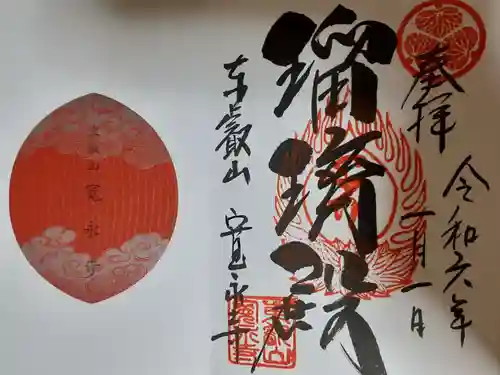 奉拝
令和六年
一月一日
瑠璃殿
東叡山 寛永寺
東叡山 寛永寺